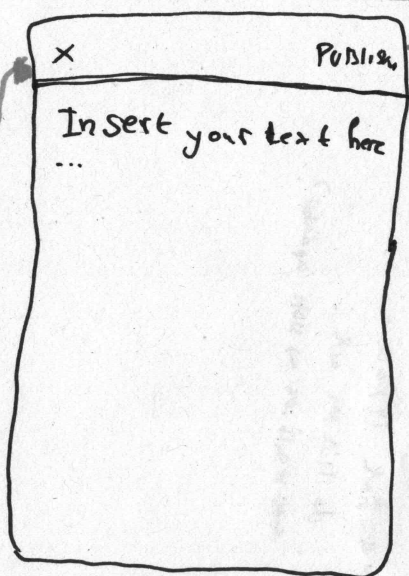 X Publish
Insert your text here
...